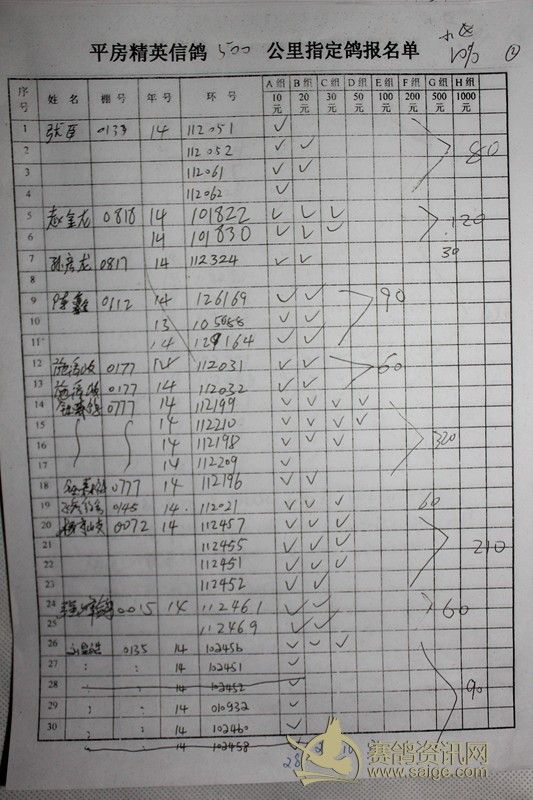 小区
10% ②
平房精英信鸽 500 公里指定鸽报名单
序号 姓名 棚号 年号 环号 A组10元 B组20元 C组30元 D组50元 E组100元 F组200元 G组500元 H组1000元
1 0133 14 112051 ✓
2 112052 ✓ ✓ 80
3 112061 ✓ ✓
4 112062 ✓
5 赵金龙 0818 14 101822 ✓ ✓ ✓ 120
6 14 101830 ✓ ✓ ✓
7 孙彦龙 0817 14 112324 ✓ ✓ 30
8
9 0112 14 126169 ✓ ✓ 90
10 13 105088 ✓ ✓
11 14 129164 ✓ ✓
12 0177 14 112031 ✓ ✓ 60
13 0177 14 112032 ✓ ✓
14 0777 14 112199 ✓ ✓ ✓ ✓
15 14 112210 ✓ ✓ ✓ ✓
16 14 112198 ✓ ✓ ✓ 320
17 14 112209 ✓
18 0777 14 112196 ✓ ✓
19 0145 14 112021 ✓ ✓ ✓ 60
20 0072 14 112457 ✓ ✓ ✓
21 112455 ✓ ✓ ✓ 210
22 112451 ✓ ✓ ✓
23 112452 ✓ ✓
24 0015 14 112461 ✓ ✓ 60
25 112469 ✓ ✓
26 0135 14 102456 ✓ ✓ ✓
27 14 102451 ✓
28 14 102452 ✓ 90
29 14 010932 ✓
30 14 102460 ✓
14 102458
28
赛鸽资讯网
www.saige.com